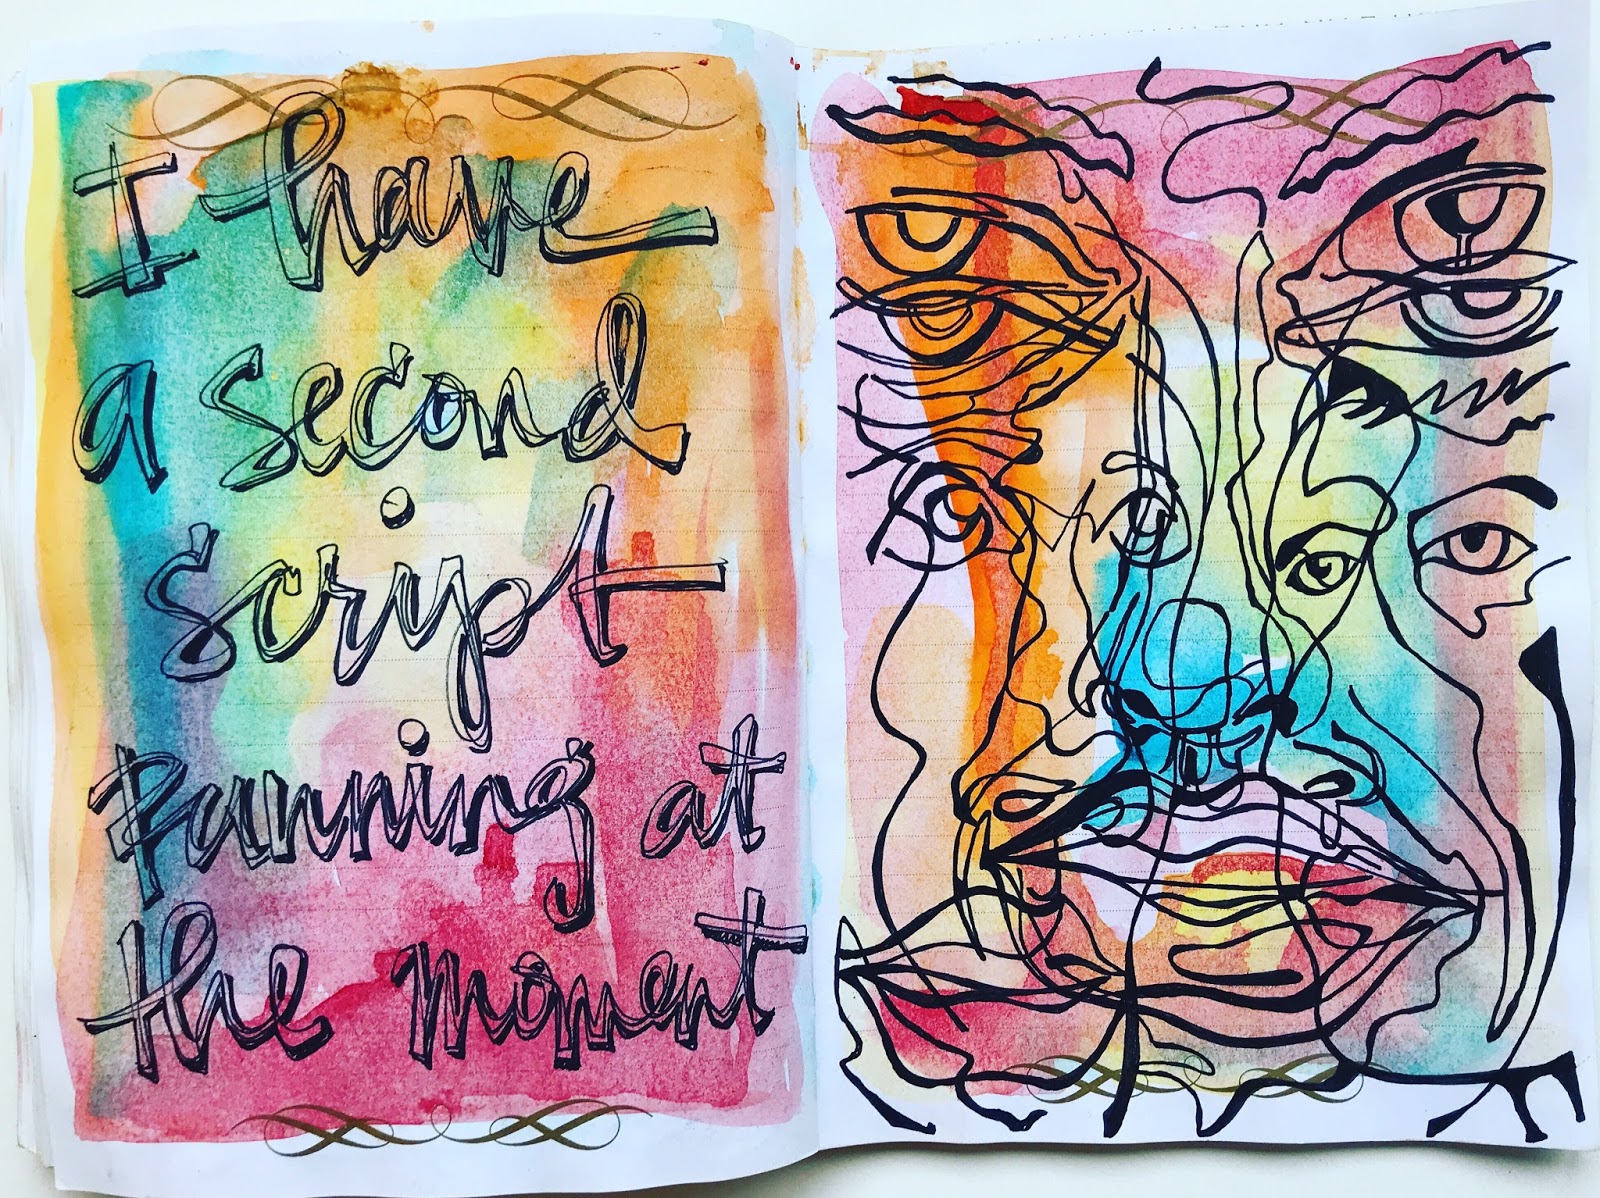 I have
a second
script
Running at
the moment